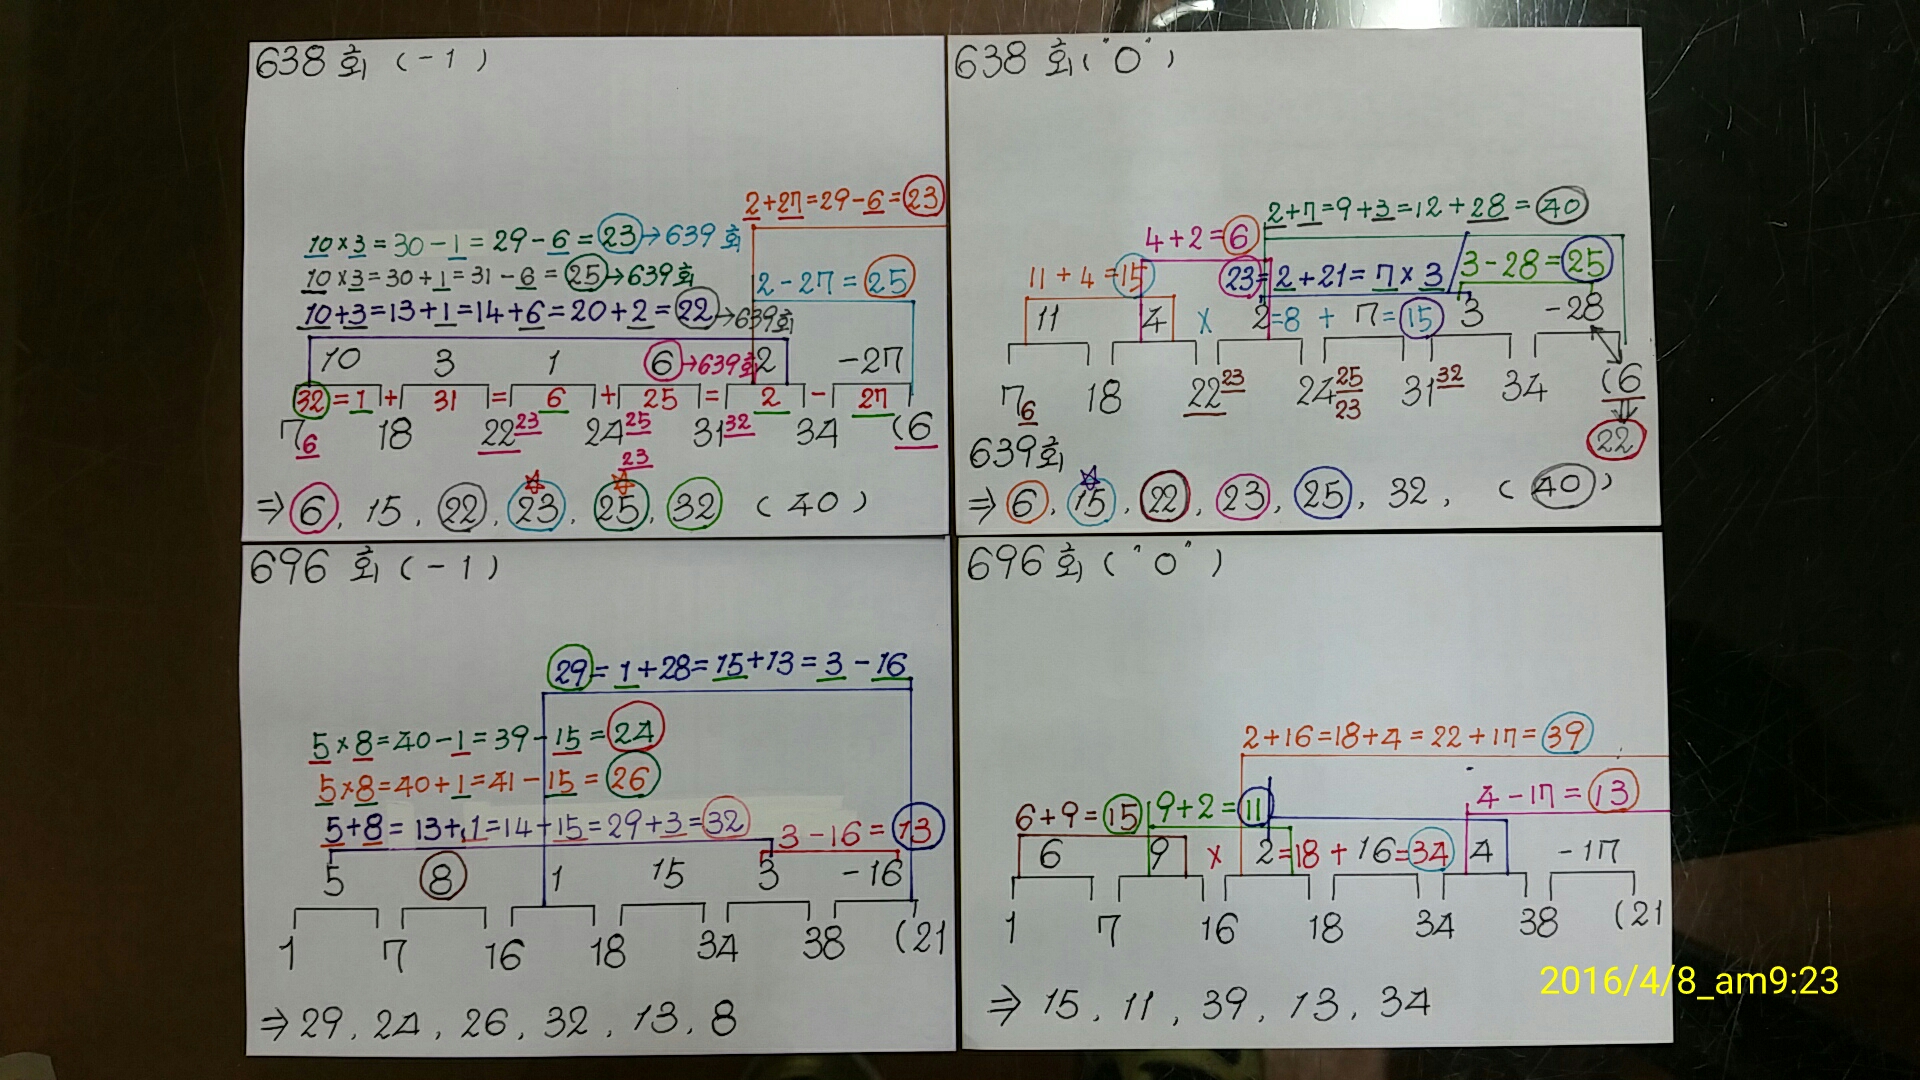 638 회 (-1)
2+27=29-6=23
10×3=30-1=29-6=23→639 회
10×3=30+1=31-6=25→639회
2-27=25
10+3=13+1=14+6=20+2=22→639회
10 3 1 6→639회 2 -27
32=1+31=6+25=2-27
7 6 18 22 23 24 25 31 32 34 (6
23
⇒ 6, 15, 22, 23, 25, 32 (40)
638 회("0")
2+7=9+3=12+28=40
4+2=6
11+4=15
23=2+21=7×3
3-28=25
11 4 × 2=8+7=15 3 -28
7 6 18 22 23 24 25 23 31 32 34 (6
22
639회
⇒ 6, 15, 22, 23, 25, 32, (40)
696 회 (-1)
29=1+28=15+13=3-16
5×8=40-1=39-15=24
5×8=40+1=41-15=26
5+8=13+1=14+15=29+3=32
3-16=13
5 8 1 15 3 -16
1 7 16 18 34 38 (21
⇒ 29, 24, 26, 32, 13, 8
696 회 ("0")
2+16=18+4=22+17=39
4-17=13
6+9=15 9+2=11
6 9 × 2=18+16=34 4 -17
1 7 16 18 34 38 (21
⇒ 15, 11, 39, 13, 34
2016/4/8_am9:23